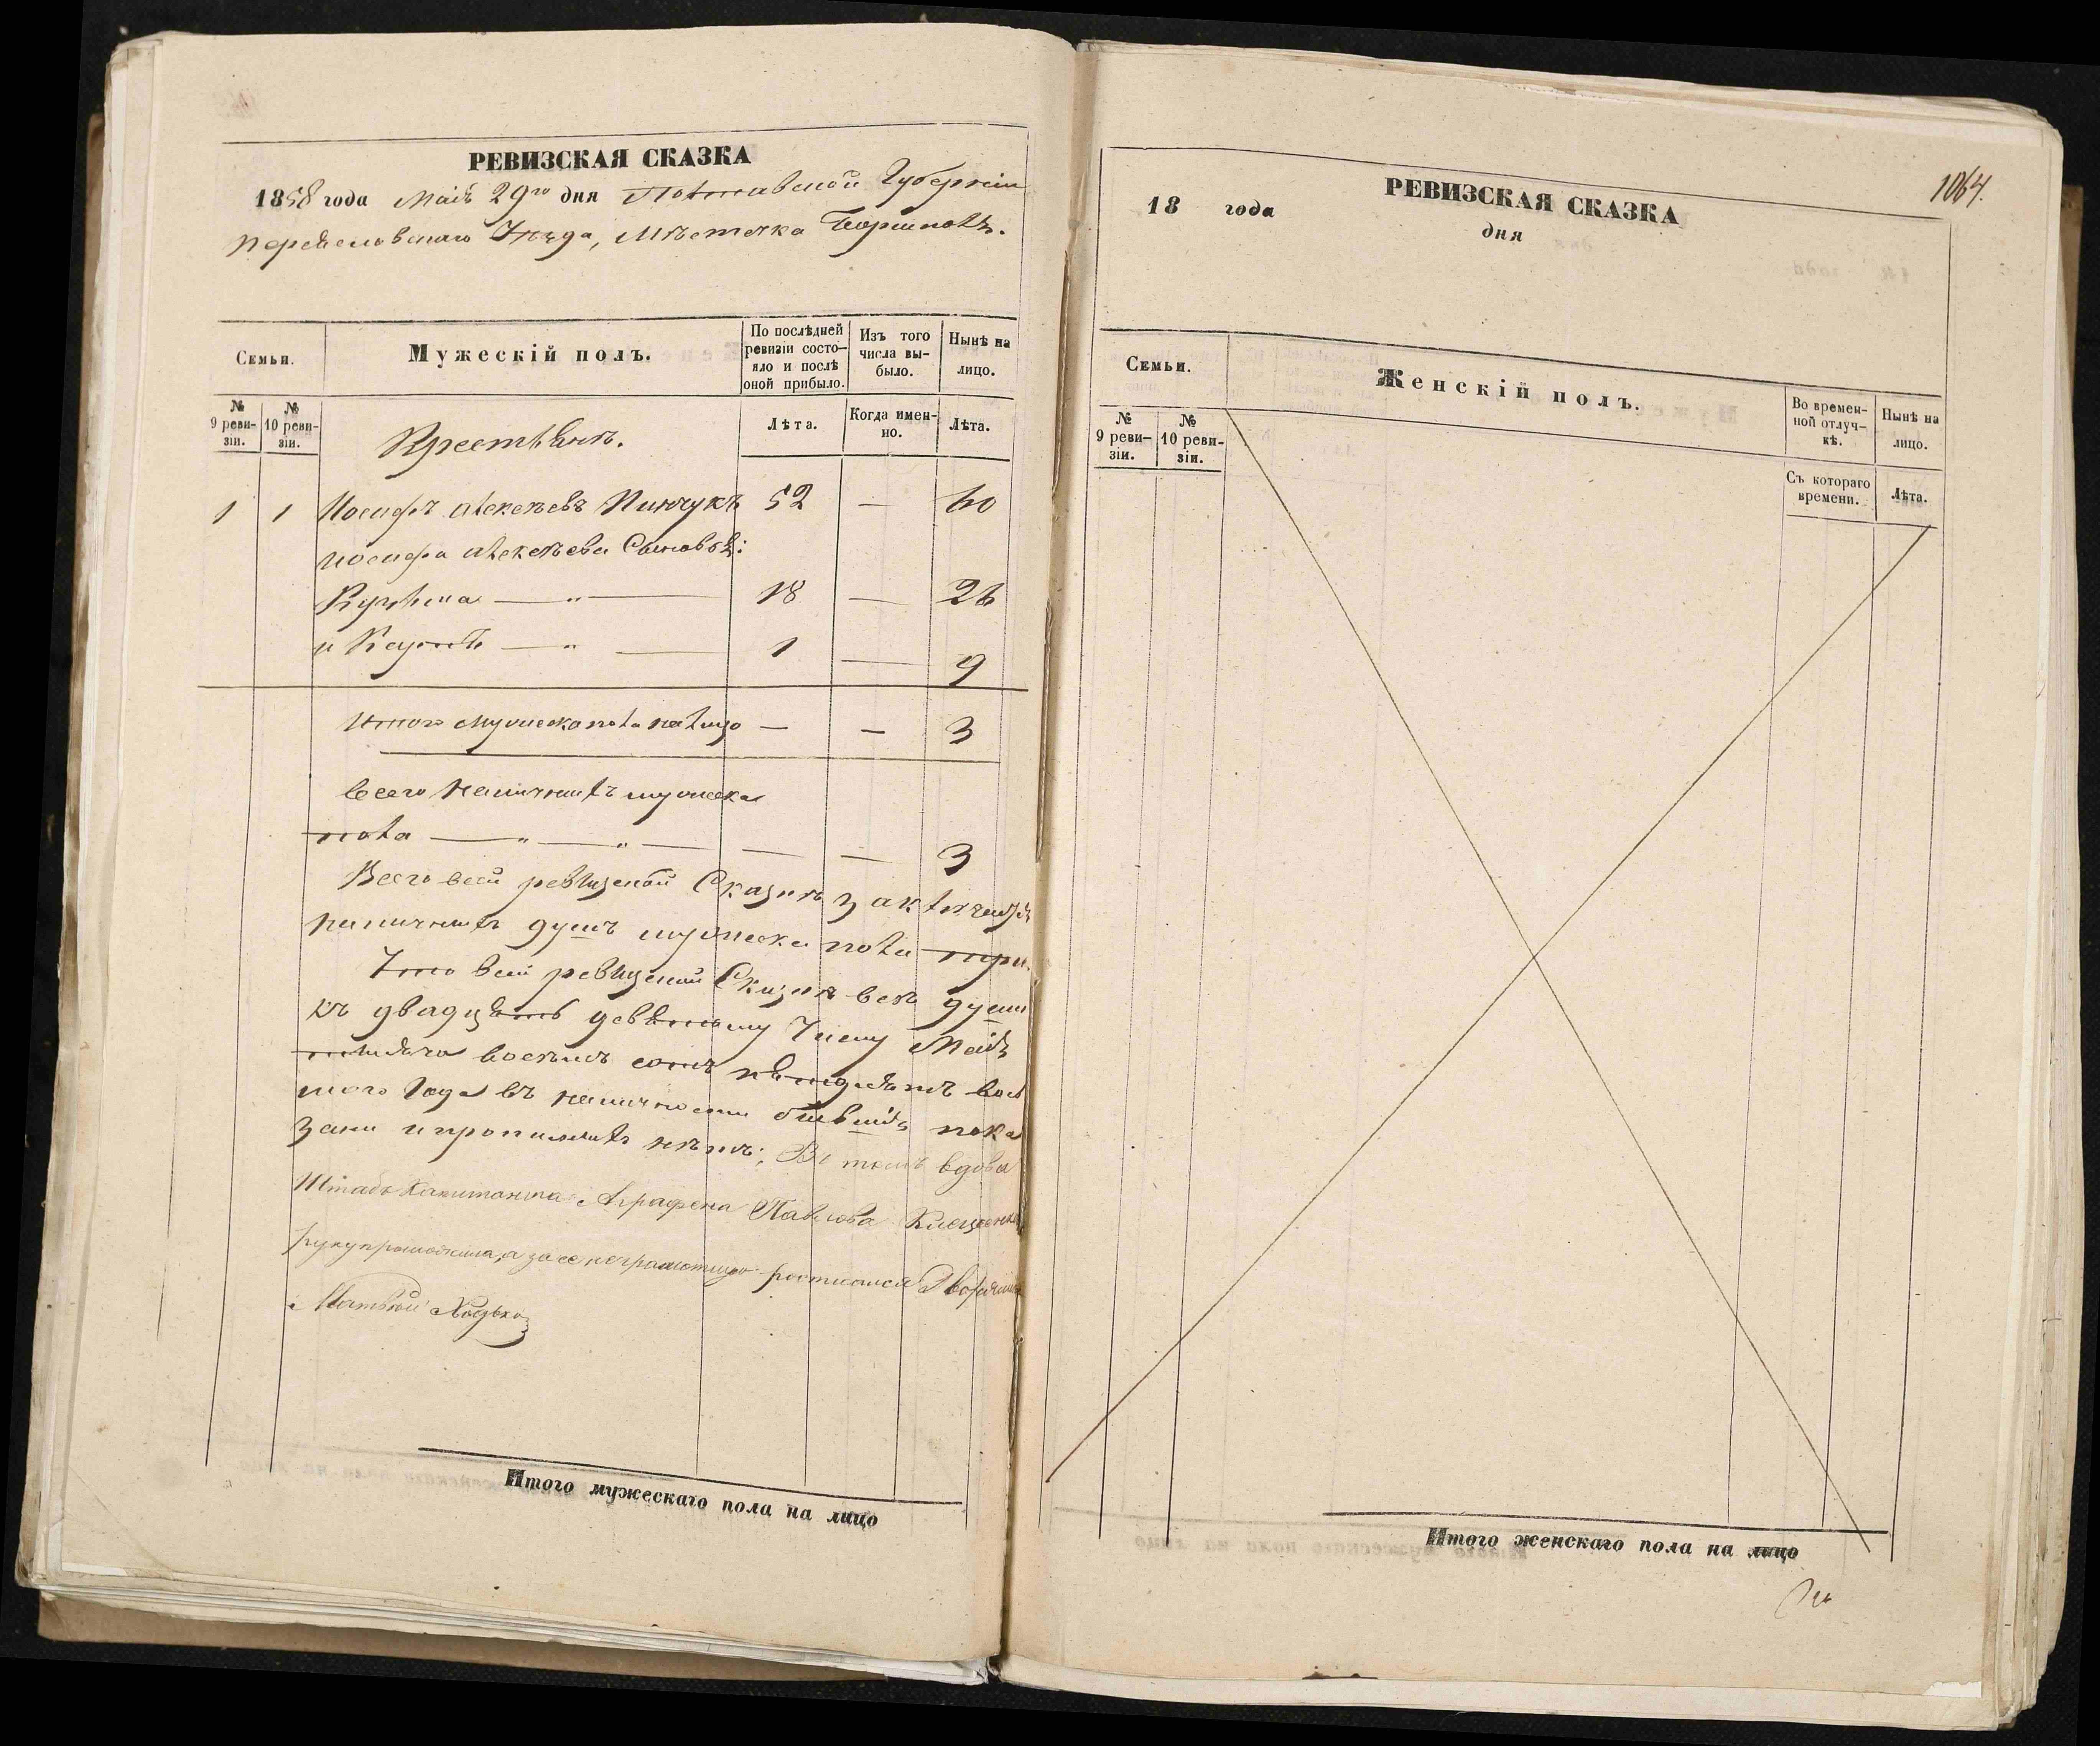 РЕВИЗСКАЯ СКАЗКА
1858 года Маія 29го дня Полтавской Губерніи
Переяславскаго Уѣзда, Мѣстечка Борисполя.
Семьи.
Мужескій полъ.
По послѣдней ревизіи состояло и послѣ оной прибыло.
Изъ того числа выбыло.
Нынѣ на лицо.
№ 9 ревизіи.
№ 10 ревизіи.
Крестьянъ.
Лѣта.
Когда именно.
Лѣта.
1 1 Иосифъ Алексѣевъ Пинчукъ 52 — 60
Иосифа Алексѣева Сыновья:
Кузьма — " — 18 — 26
и Карпъ — " — 1 — 9
Итого мужеска пола на лицо — — 3
Всего наличныхъ мужеска
пола — " — " — — — 3
Всего въ сей ревизской Сказкѣ заключается
наличныхъ душъ мужеска пола три.
Что въ сей ревизской Сказкѣ всѣ души
къ двадцать девятому Числу Маія
тысяча восемь сотъ пятьдесятъ вось
мого Года въ наличности бывшія пока
заны и прописныхъ нѣтъ; Въ томъ вдова
Штабъ Капитанша Аграфена Павлова
руку приложила, а за ее неграмотную росписался Дворянинъ
Матвѣй Ходько
Итого мужескаго пола на лицо
1064.
РЕВИЗСКАЯ СКАЗКА
18 года дня
Семьи.
Женскій полъ.
Во временной отлучкѣ.
Нынѣ на лицо.
№ 9 ревизіи.
№ 10 ревизіи.
Съ котораго времени.
Лѣта.
Итого женскаго пола на лицо